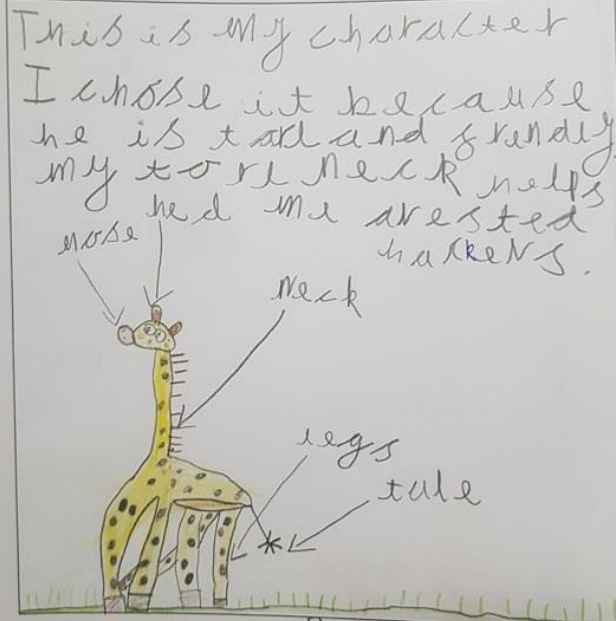 This is my character
I chose it because
he is tarl and frendly
my torl neck helps
me arested
hackers.
hed
nose
Neck
legs
tale